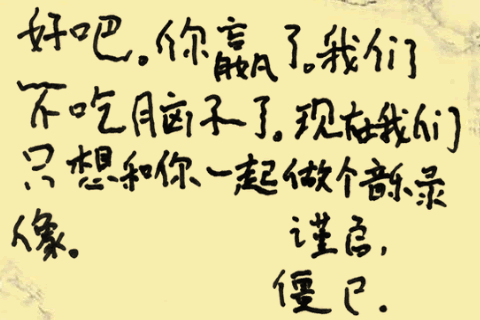 好吧。你赢了。我们
不吃脑子了。现在我们
只想和你一起做个音乐录
像。 谨启,
僵尸.